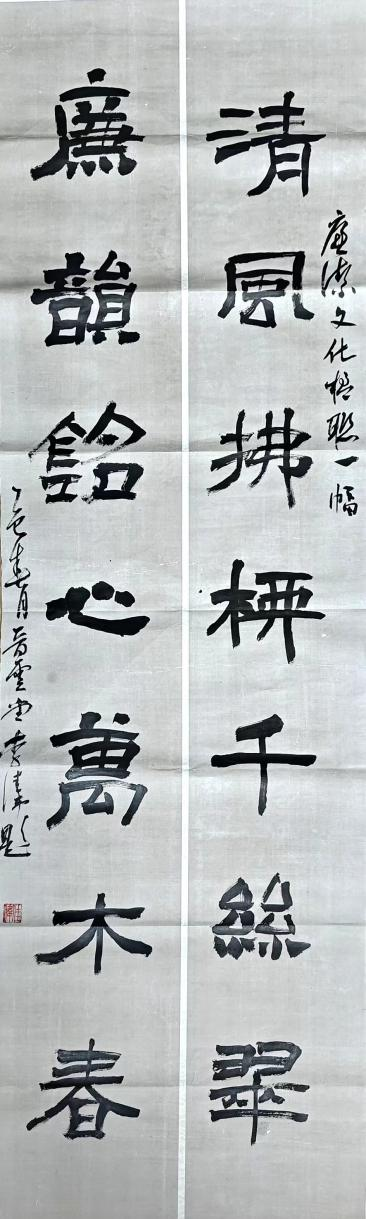 清風拂柳千絲翠
廉潔文化楹聯一幅
廉韻銘心萬木春
乙巳春月 雲堂李濤題